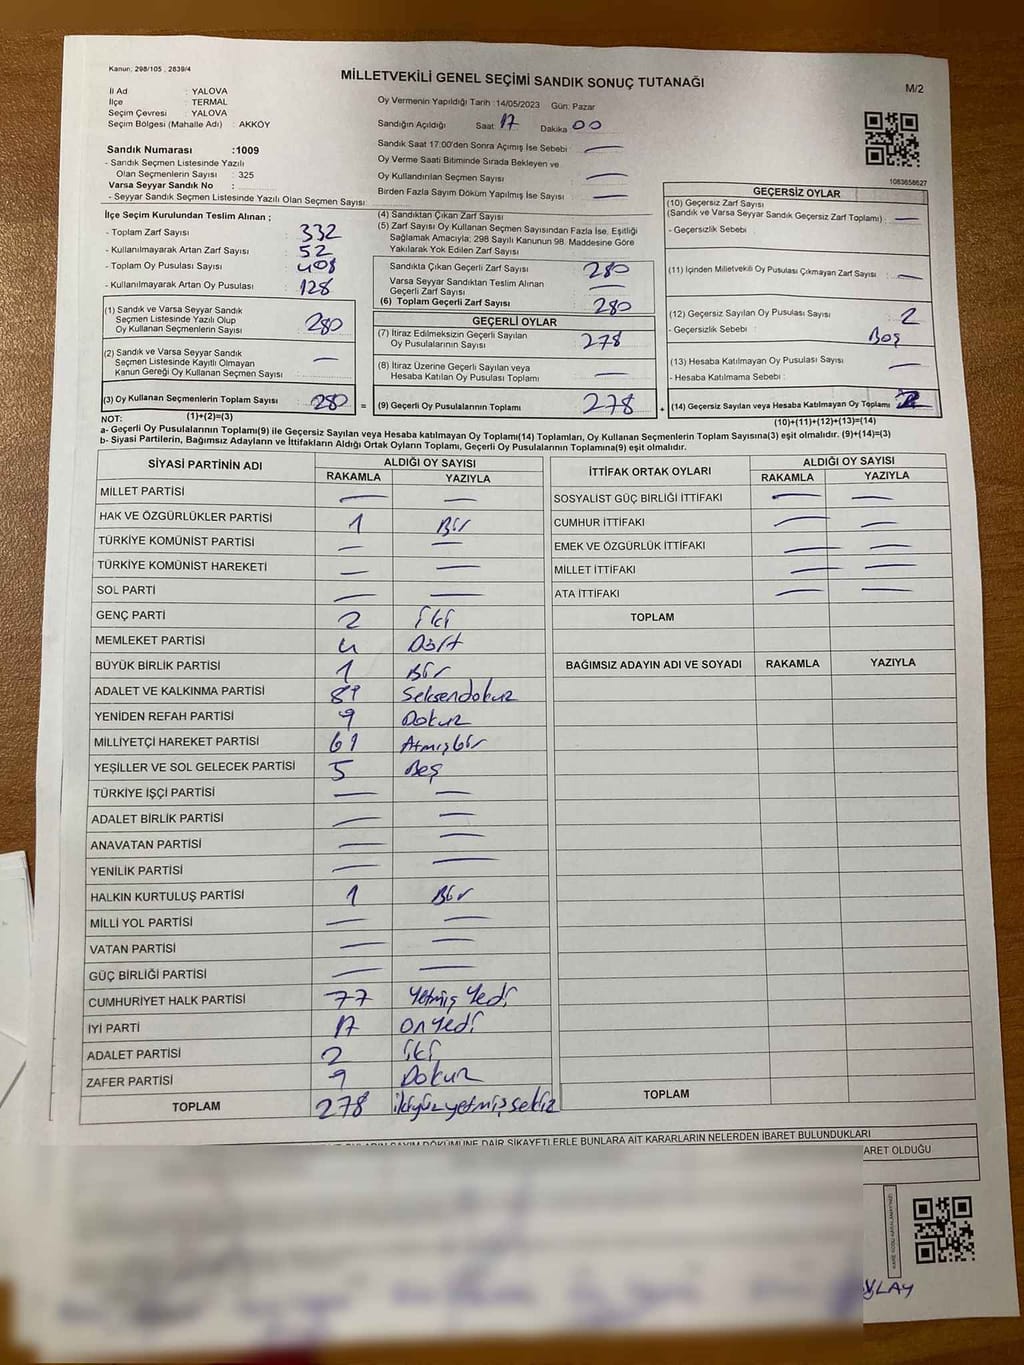 Kanun: 298/105 , 2839/4
MİLLETVEKİLİ GENEL SEÇİMİ SANDIK SONUÇ TUTANAĞI
M/2
İl Ad : YALOVA
İlçe : TERMAL
Seçim Çevresi : YALOVA
Seçim Bölgesi (Mahalle Adı) : AKKÖY
Oy Vermenin Yapıldığı Tarih :14/05/2023 Gün: Pazar
Sandığın Açıldığı Saat 17 Dakika 00
Sandık Numarası :1009
- Sandık Seçmen Listesinde Yazılı
Olan Seçmenlerin Sayısı : 325
Varsa Seyyar Sandık No :
- Seyyar Sandık Seçmen Listesinde Yazılı Olan Seçmen Sayısı:
Sandık Saat 17.00'den Sonra Açımış İse Sebebi : —
Oy Verme Saati Bitiminde Sırada Bekleyen ve
Oy Kullandırılan Seçmen Sayısı : —
Birden Fazla Sayım Döküm Yapılmış İse Sayısı : —
1083658627
İlçe Seçim Kurulundan Teslim Alınan ;
- Toplam Zarf Sayısı : 332
- Kullanılmayarak Artan Zarf Sayısı : 52
- Toplam Oy Pusulası Sayısı : 408
- Kullanılmayarak Artan Oy Pusulası : 128
(1) Sandık ve Varsa Seyyar Sandık
Seçmen Listesinde Yazılı Olup
Oy Kullanan Seçmenlerin Sayısı : 280
(2) Sandık ve Varsa Seyyar Sandık
Seçmen Listesinde Kayıtlı Olmayan
Kanun Gereği Oy Kullanan Seçmen Sayısı : —
(3) Oy Kullanan Seçmenlerin Toplam Sayısı : 280
(1)+(2)=(3)
(4) Sandıktan Çıkan Zarf Sayısı
(5) Zarf Sayısı Oy Kullanan Seçmen Sayısından Fazla İse, Eşitliği
Sağlamak Amacıyla; 298 Sayılı Kanunun 98. Maddesine Göre
Yakılarak Yok Edilen Zarf Sayısı
Sandıkta Çıkan Geçerli Zarf Sayısı 280
Varsa Seyyar Sandıktan Teslim Alınan
Geçerli Zarf Sayısı : —
(6) Toplam Geçerli Zarf Sayısı : 280
GEÇERLİ OYLAR
(7) İtiraz Edilmeksizin Geçerli Sayılan
Oy Pusulalarının Sayısı : 278
(8) İtiraz Üzerine Geçerli Sayılan veya
Hesaba Katılan Oy Pusulası Toplamı : —
= (9) Geçerli Oy Pusulalarının Toplamı : 278 +
GEÇERSİZ OYLAR
(10) Geçersiz Zarf Sayısı
(Sandık ve Varsa Seyyar Sandık Geçersiz Zarf Toplamı) : —
- Geçersizlik Sebebi :
(11) İçinden Milletvekili Oy Pusulası Çıkmayan Zarf Sayısı : —
(12) Geçersiz Sayılan Oy Pusulası Sayısı : 2
- Geçersizlik Sebebi : Boş
(13) Hesaba Katılmayan Oy Pusulası Sayısı : —
- Hesaba Katılmama Sebebi :
(14) Geçersiz Sayılan veya Hesaba Katılmayan Oy Toplamı : 2
(10)+(11)+(12)+(13)=(14)
NOT:
a- Geçerli Oy Pusulalarının Toplamı(9) ile Geçersiz Sayılan veya Hesaba katılmayan Oy Toplamı(14) Toplamları, Oy Kullanan Seçmenlerin Toplam Sayısına(3) eşit olmalıdır. (9)+(14)=(3)
b- Siyasi Partilerin, Bağımsız Adayların ve İttifakların Aldığı Ortak Oyların Toplamı, Geçerli Oy Pusulalarının Toplamına(9) eşit olmalıdır.
SİYASİ PARTİNİN ADI ALDIĞI OY SAYISI
RAKAMLA YAZIYLA
MİLLET PARTİSİ — —
HAK VE ÖZGÜRLÜKLER PARTİSİ 1 Bir
TÜRKİYE KOMÜNİST PARTİSİ — —
TÜRKİYE KOMÜNİST HAREKETİ — —
SOL PARTİ — —
GENÇ PARTİ 2 İki
MEMLEKET PARTİSİ 4 Dört
BÜYÜK BİRLİK PARTİSİ 1 Bir
ADALET VE KALKINMA PARTİSİ 89 Seksendokuz
YENİDEN REFAH PARTİSİ 9 Dokuz
MİLLİYETÇİ HAREKET PARTİSİ 61 Atmışbir
YEŞİLLER VE SOL GELECEK PARTİSİ 5 Beş
TÜRKİYE İŞÇİ PARTİSİ — —
ADALET BİRLİK PARTİSİ — —
ANAVATAN PARTİSİ — —
YENİLİK PARTİSİ — —
HALKIN KURTULUŞ PARTİSİ 1 Bir
MİLLİ YOL PARTİSİ — —
VATAN PARTİSİ — —
GÜÇ BİRLİĞİ PARTİSİ — —
CUMHURİYET HALK PARTİSİ 77 Yetmiş Yedi
İYİ PARTİ 17 On Yedi
ADALET PARTİSİ 2 İki
ZAFER PARTİSİ 9 Dokuz
TOPLAM 278 ikiyüz yetmiş sekiz
İTTİFAK ORTAK OYLARI ALDIĞI OY SAYISI
RAKAMLA YAZIYLA
SOSYALİST GÜÇ BİRLİĞİ İTTİFAKI — —
CUMHUR İTTİFAKI — —
EMEK VE ÖZGÜRLÜK İTTİFAKI — —
MİLLET İTTİFAKI — —
ATA İTTİFAKI — —
TOPLAM
BAĞIMSIZ ADAYIN ADI VE SOYADI RAKAMLA YAZIYLA
TOPLAM
SAYIM DÖKÜMÜNE DAİR ŞİKAYETLERLE BUNLARA AİT KARARLARIN NELERDEN İBARET BULUNDUKLARI
ARET OLDUĞU